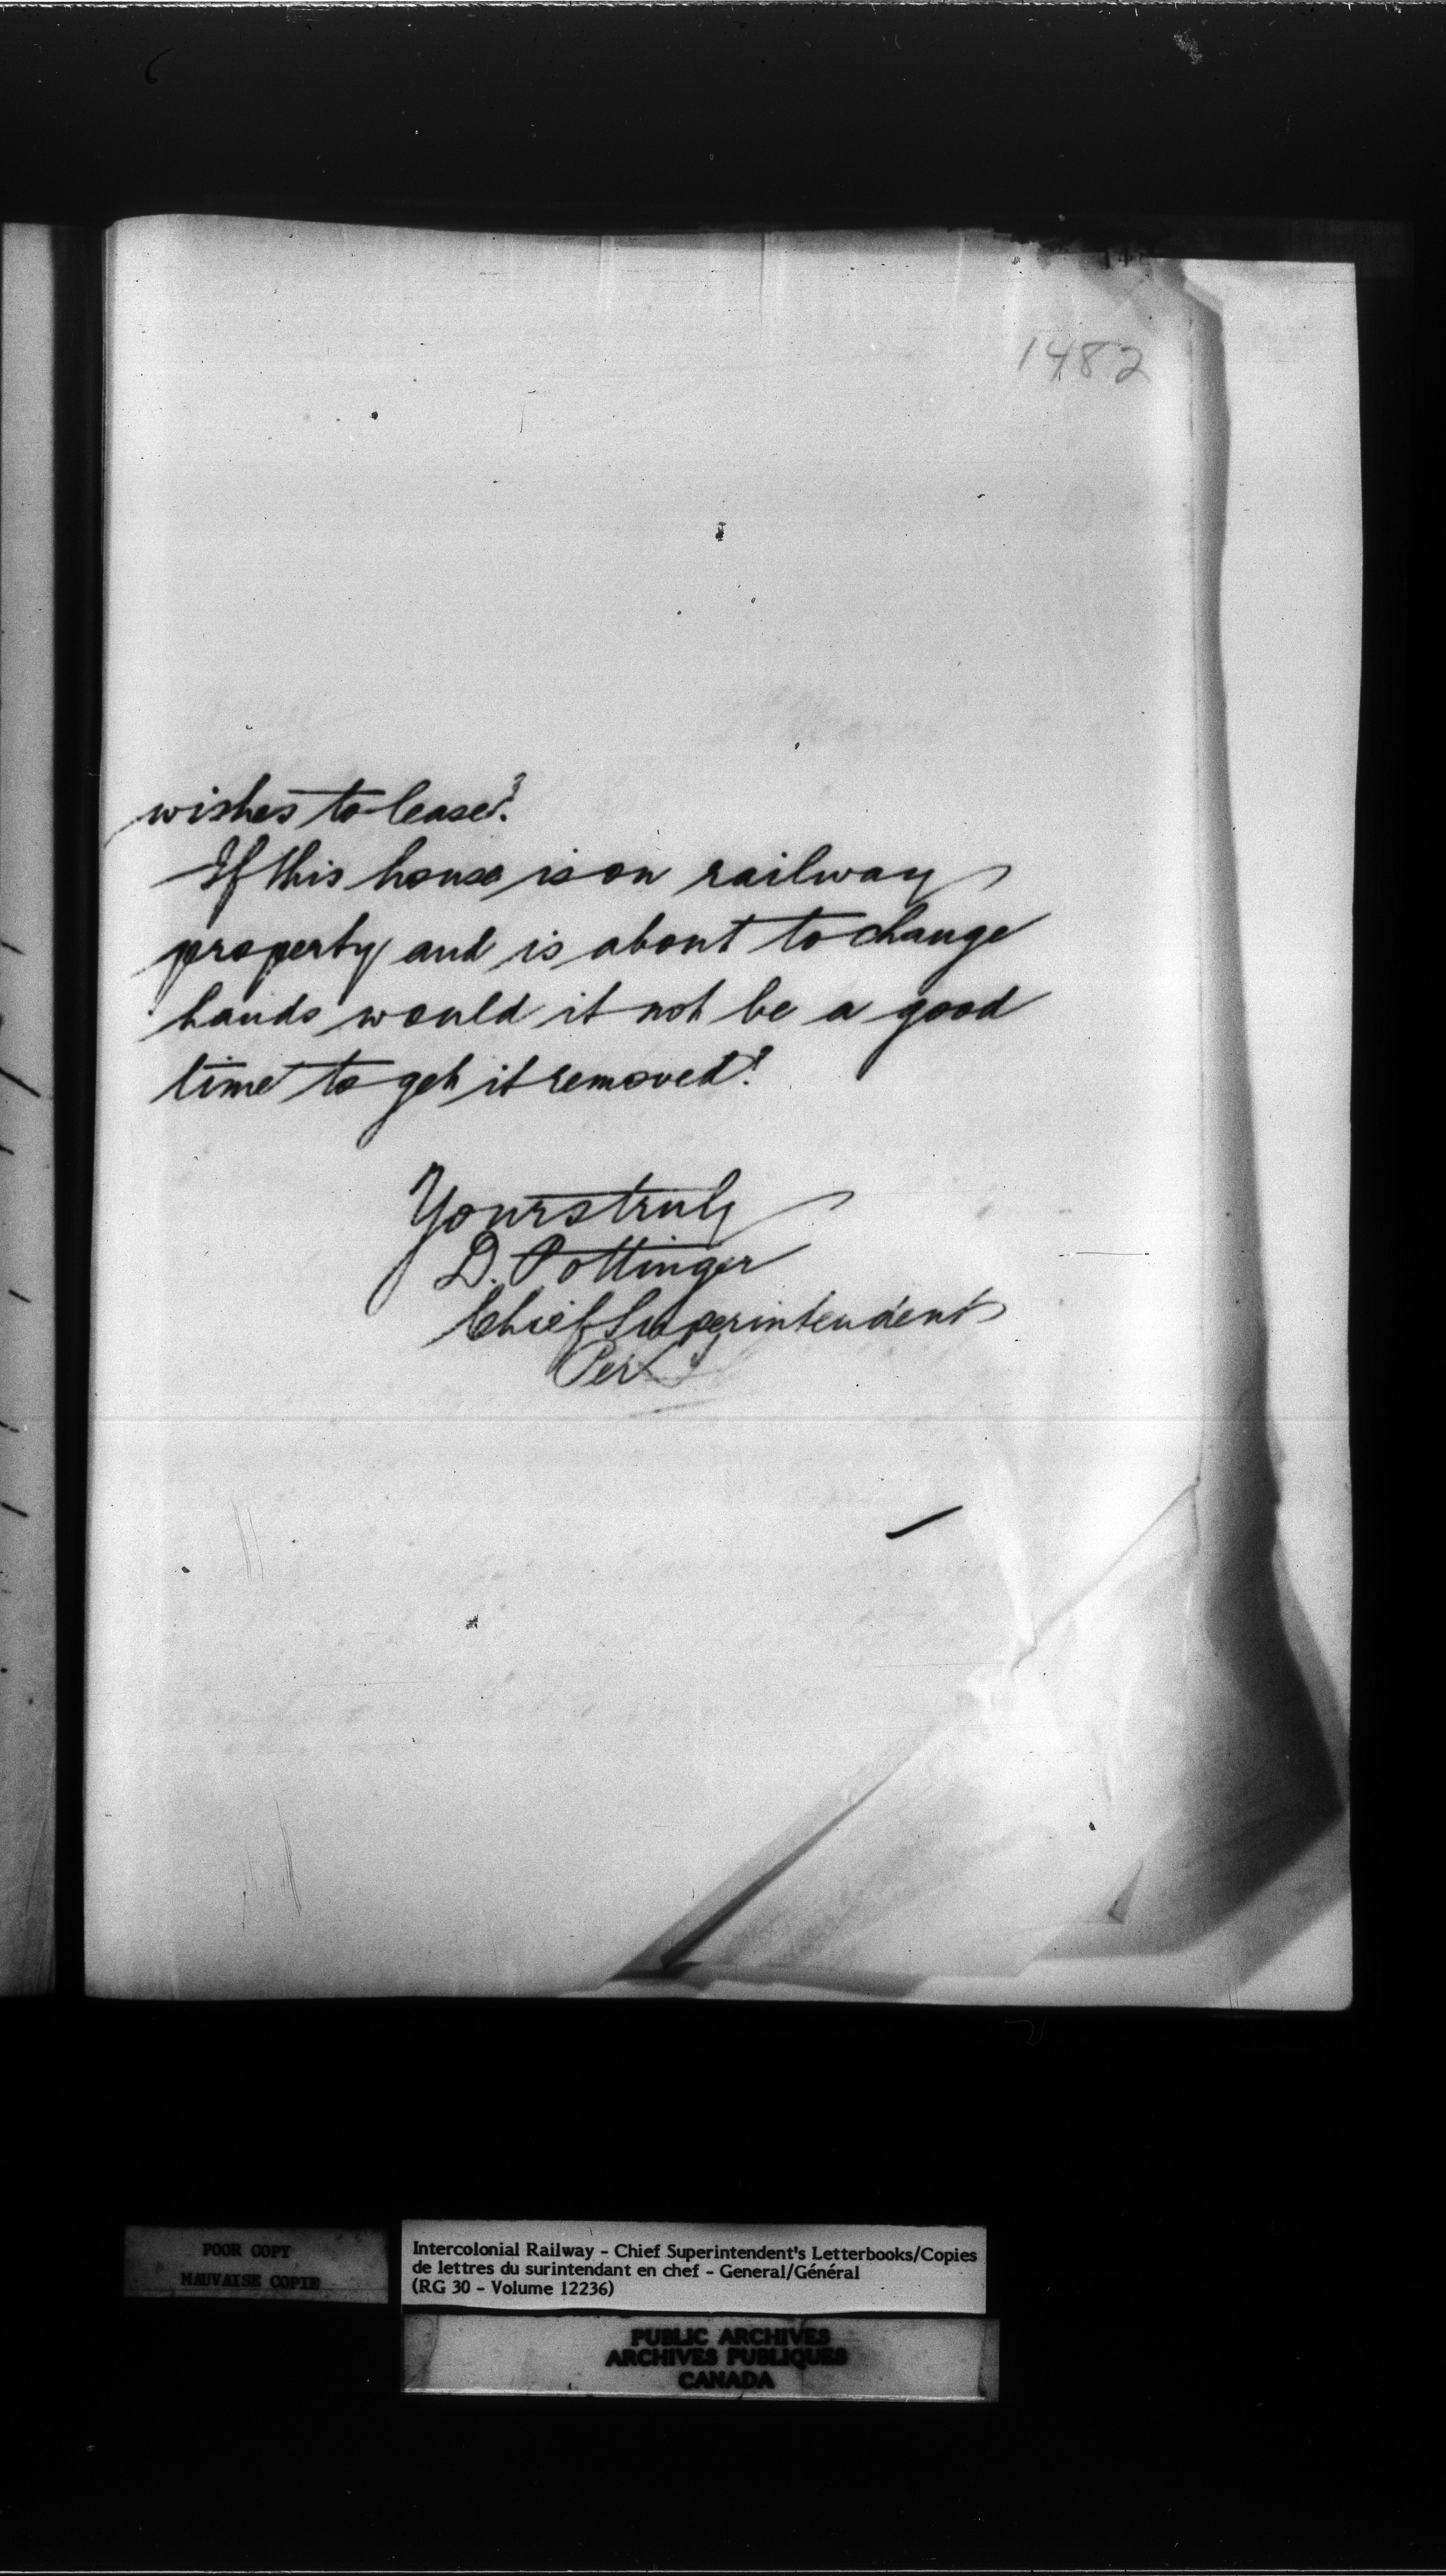 1482
wishes to lease?
If this house is on railway
property and is about to change
hands would it not be a good
time to get it removed?
Yours truly
D. Pottinger
Chief Superintendent
Per
POOR COPY
MAUVAISE COPIE
Intercolonial Railway - Chief Superintendent's Letterbooks/Copies
de lettres du surintendant en chef - General/Général
(RG 30 - Volume 12236)
PUBLIC ARCHIVES
ARCHIVES PUBLIQUES
CANADA